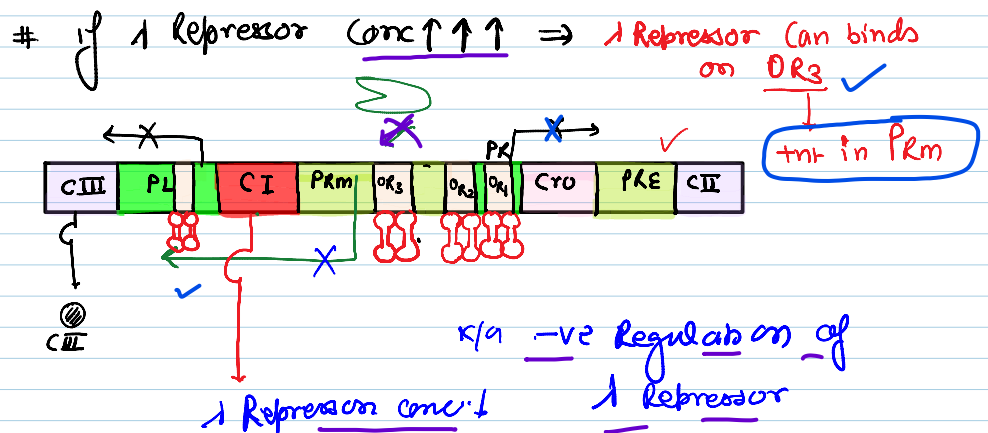 # if λ Repressor Conc↑↑↑ ⇒ λ Repressor Can binds
on OR3 ✓
tnt in PRm
PR
CIII PL CI PRm OR3 OR2 OR1 Cro PRE CII
CIII
K/a -ve Regulation of
λ Repressor
λ Repressor conc.↓